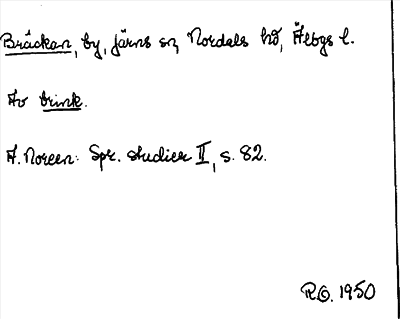 Bräckan, by, järns sn, Nordals hd, Älvbgs l.
Av brink.
A. Noreen: Spr. studier II, s. 82.
R.O. 1950